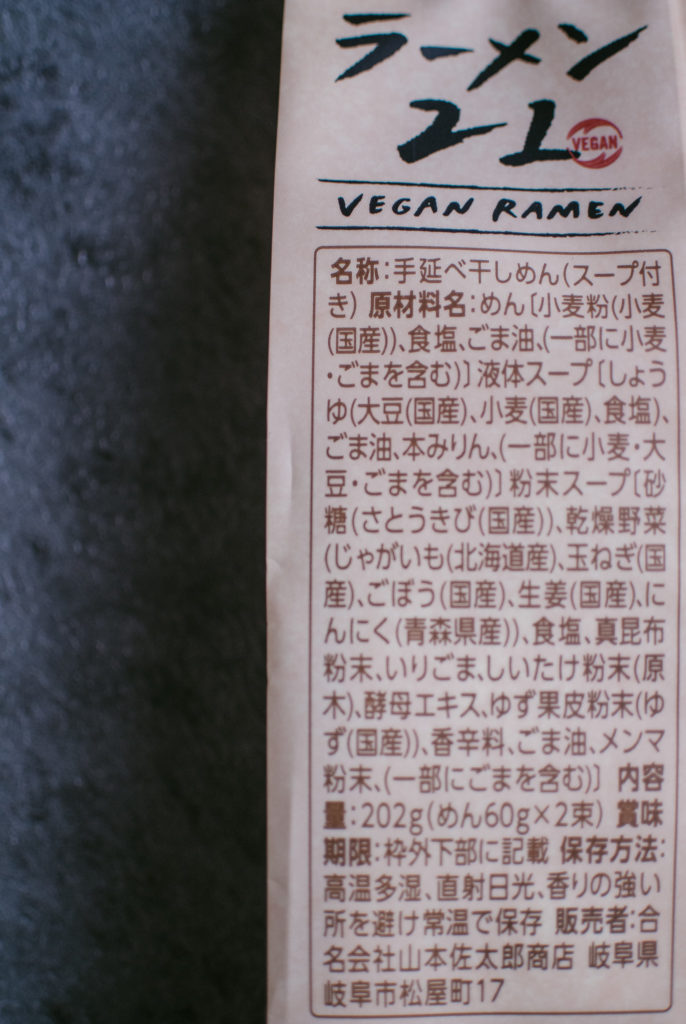 ラーメン
21
VEGAN
VEGAN RAMEN
名称:手延べ干しめん(スープ付
き) 原材料名:めん〔小麦粉(小麦
(国産))、食塩、ごま油、(一部に小麦
・ごまを含む)〕液体スープ〔しょう
ゆ(大豆(国産)、小麦(国産)、食塩)、
ごま油、本みりん、(一部に小麦・大
豆・ごまを含む)〕粉末スープ〔砂
糖(さとうきび(国産))、乾燥野菜
(じゃがいも(北海道産)、玉ねぎ(国
産)、ごぼう(国産)、生姜(国産)、に
んにく(青森県産))、食塩、真昆布
粉末、いりごま、しいたけ粉末(原
木)、酵母エキス、ゆず果皮粉末(ゆ
ず(国産))、香辛料、ごま油、メンマ
粉末、(一部にごまを含む)〕 内容
量:202g(めん60g×2束) 賞味
期限:枠外下部に記載 保存方法:
高温多湿、直射日光、香りの強い
所を避け常温で保存 販売者:合
名会社山本佐太郎商店 岐阜県
岐阜市松屋町17